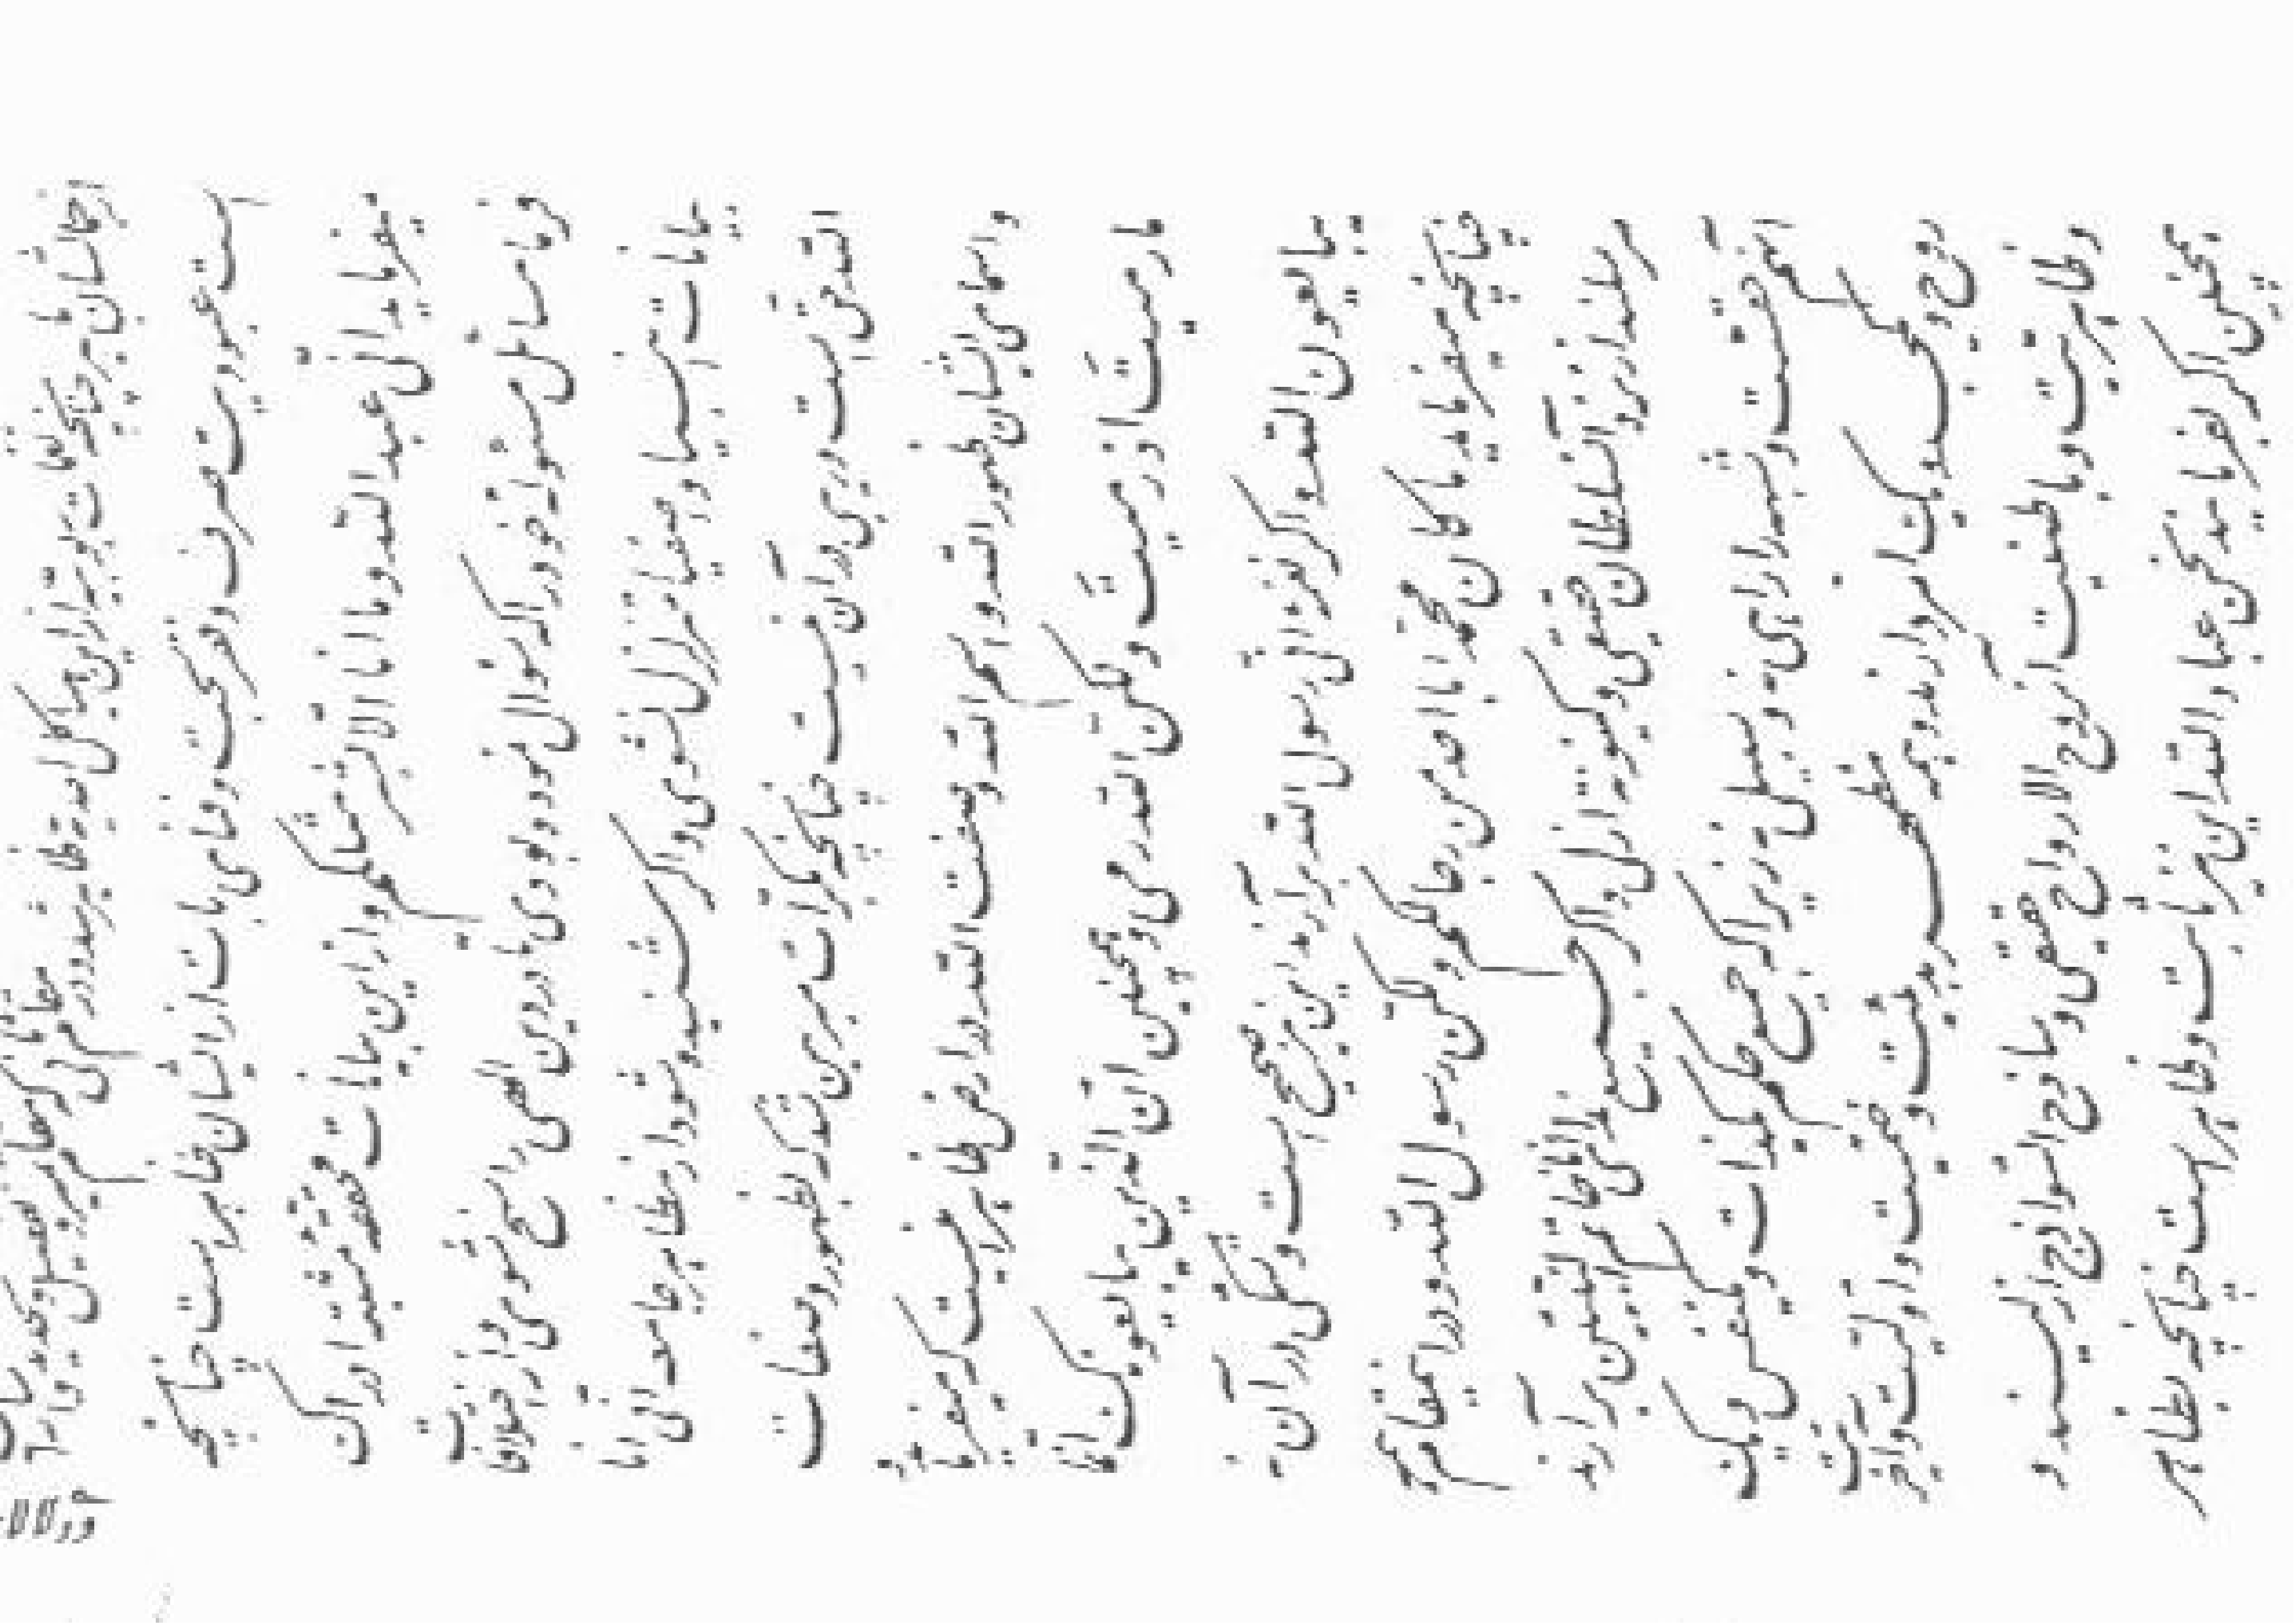 ظاهر چنانچه نغمات ربوبیه از این هیاکل احدیه ظاهر شد و در
است عبودیت صرف و فقر بحت و فنای بات از ایشان ظاهر است چنانچه
میفرماید انّی عبد اللّه و ما انا الّا بشر مثلکم و از این بیانات محققه مثبته ادراک
فرما مسائل مسئوله خود را که سؤال نموده بودی تا در دین الهی راسخ شوی و از اختلافات
بیانات انبیا و اصفیا متزلزل نشوی و اگر شنیده شود از مظاهر جامعه انّی انا
اللّه حق است و ریبی در آن نیست چنانچه بکرّات مبرهن شد که بظهور و صفات
و اسمای ایشان ظهور اللّه و اسم اللّه و صفت اللّه در ارض ظاهر اینست که میفرماید و
ما رمیت اذ رمیت ولکنّ اللّه رمی و همچنین انّ الّذین یبایعونک انّما
یبایعون اللّه و اگر نغمه انّی رسول اللّه برآرند این نیز صحیح است و شکّی در آن نه
چنانچه میفرماید ما کان محمّد ابا احد من رجالکم ولکن رسول اللّه و در این مقام همه
مرسلند از نزد آن سلطان حقیقی و کینونة ازلی و اگر جمیع ندای انا خاتم النّبیّین برآرند
آنهم حق است و شبهه را راهی نه و سبیلی نه زیرا که جمیع حکم یکذات و یکنفس و یک
روح و یکجسد و یک امر دارند و همه مظهر بدئیت و ختمیت و اوّلیت و آخریت
و ظاهریت و باطنیت آن روح الارواح حقیقی و ساذج السّواذج ازلیند و
همچنین اگر بفرمایند نحن عباد اللّه این نیز ثابت و ظاهر است چنانچه بظاهر